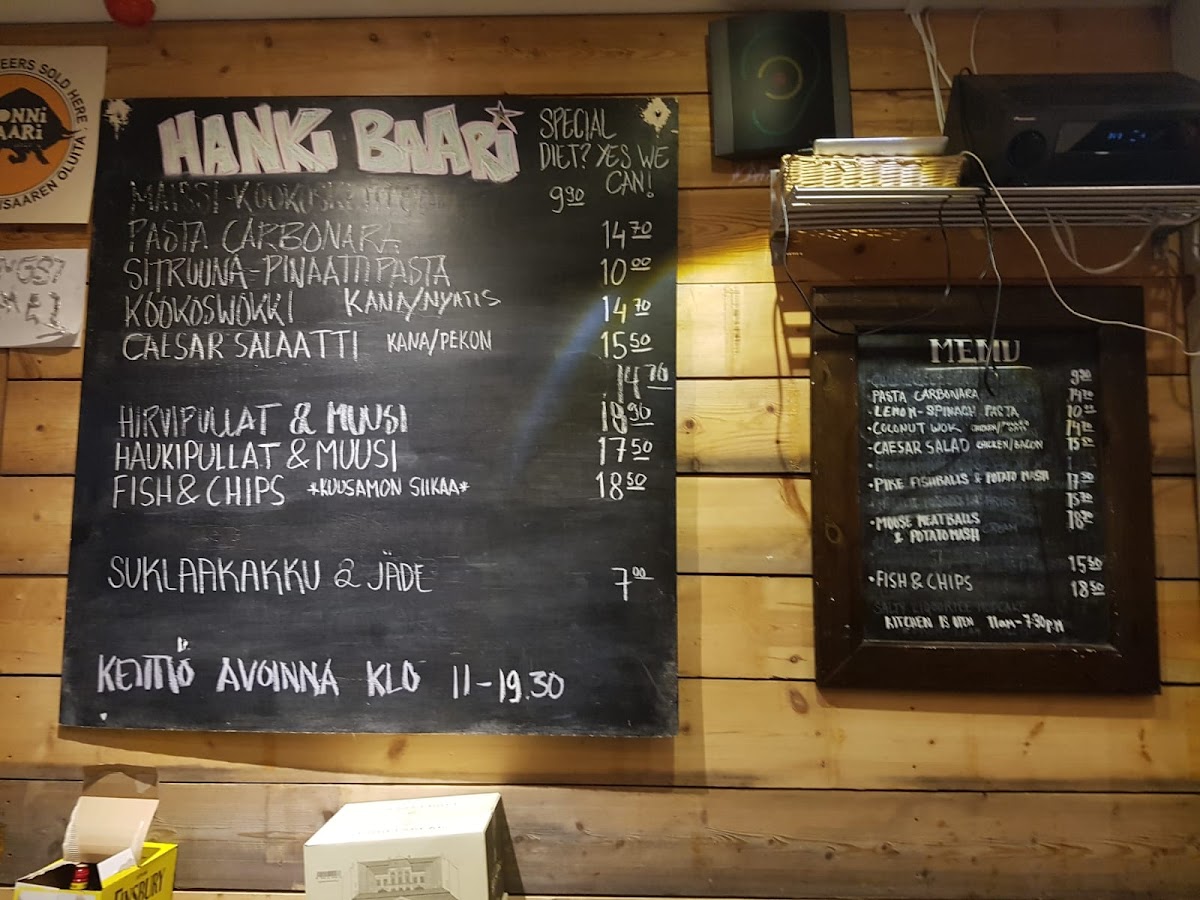 BEERS SOLD HERE
ONNI
AARI
SAAREN OLUITA
HANKI BAARI
SPECIAL
DIET? YES WE
CAN!
MAISSI-KOOKOSK
9 90
PASTA CARBONARA 14 70
SITRUUNA-PINAATTIPASTA 10 00
KOOKOSWOKKI KANA/NYHTIS 14 70
CAESAR SALAATTI KANA/PEKON 15 50
14 70
HIRVIPULLAT & MUUSI 18 90
HAUKIPULLAT & MUUSI 17 50
FISH & CHIPS *KUUSAMON SIIKAA* 18 50
SUKLAAKAKKU & JÄDE 7 00
KEITTIÖ AVOINNA KLO 11-19.30
MENU
9 90
PASTA CARBONARA 14 70
•LEMON-SPINACH PASTA 10 00
•COCONUT WOK 14 70
•CAESAR SALAD CHICKEN/BACON 15 50
•PIKE FISHBALLS & POTATO MASH 17 50
15 50
•MOOSE MEATBALLS 18 90
& POTATOMASH
15 50
•FISH & CHIPS 18 50
KITCHEN IS OPEN 11am-7:30pm
FINSBURY